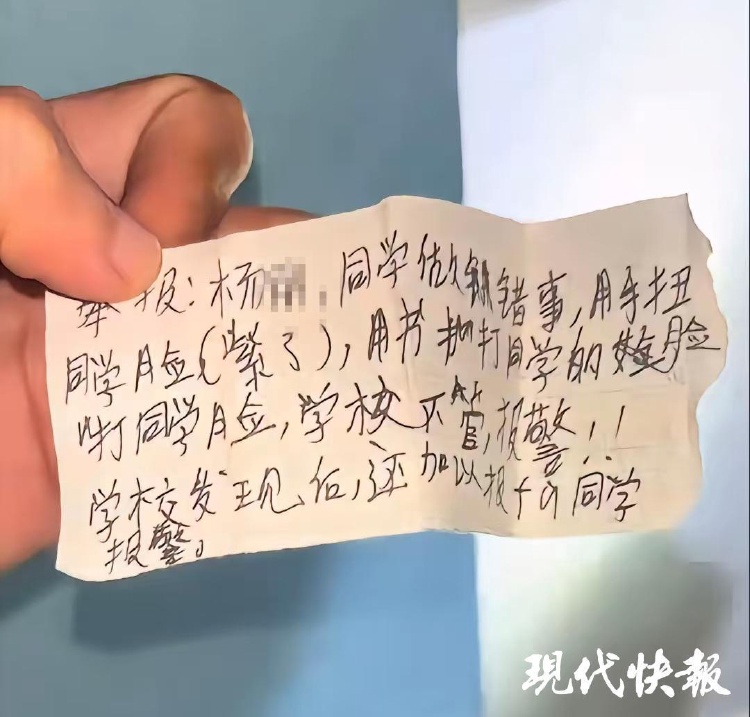 举报:杨 同学做错事,用手扭
同学脸(紫了),用书抽打同学的脸
咋打同学脸,学校不管,报警!!
学校发现后,还加以报 同学
报警。
現代快報